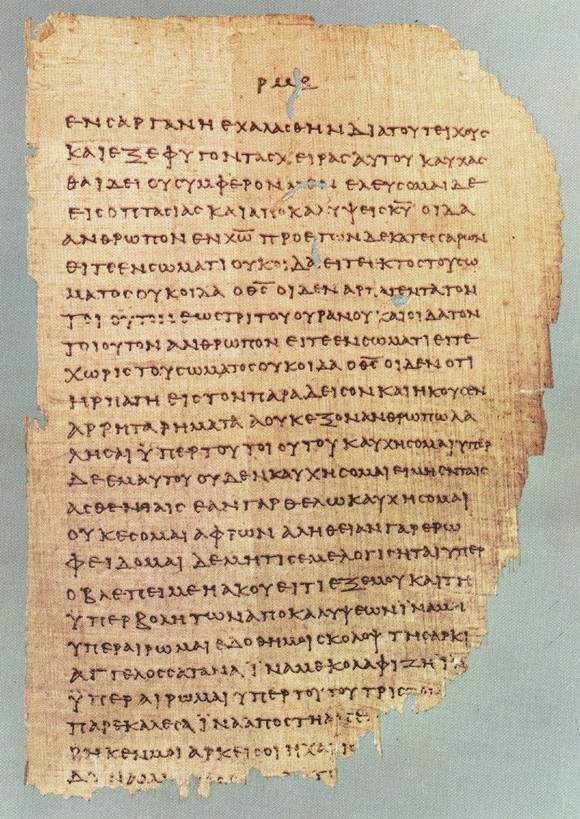 ΡΜΕ
ΕΝϹΑΡΓΑΝΗΕΧΑΛΑϹΘΗΝΔΙΑΤΟΥΤΕΙΧΟΥϹ
ΚΑΙΕΞΕΦΥΓΟΝΤΑϹΧΕΙΡΑϹΑΥΤΟΥΚΑΥΧΑϹ
ΘΑΙΔΕΙΟΥϹΥΜΦΕΡΟΝΜΕΝΕΛΕΥϹΟΜΑΙΔΕ
ΕΙϹΟΠΤΑϹΙΑϹΚΑΙΑΠΟΚΑΛΥΨΕΙϹΚ̅Υ̅ΟΙΔΑ
ΑΝΘΡΩΠΟΝΕΝΧ̅Ω̅ΠΡΟΕΤΩΝΔΕΚΑΤΕϹϹΑΡΩΝ
ΕΙΤΕΕΝϹΩΜΑΤΙΟΥΚΟΙΔΑΕΙΤΕΙΚΤΟϹΤΟΥϹΩ
ΜΑΤΟϹΟΥΚΟΙΔΑΟΘ̅Ϲ̅ΟΙΔΕΝΑΡΠΑΓΕΝΤΑΤΟΝ
ΤΟΙΟΥΤΟΝΕΩϹΤΡΙΤΟΥΟΥΡΑΝΟΥΚΑΙΟΙΔΑΤΟΝ
ΤΟΙΟΥΤΟΝΑΝΘΡΩΠΟΝΕΙΤΕΕΝϹΩΜΑΤΙΕΙΤΕ
ΧΩΡΙϹΤΟΥϹΩΜΑΤΟϹΟΥΚΟΙΔΑΟΘ̅Ϲ̅ΟΙΔΕΝΟΤΙ
ΗΡΠΑΓΗΕΙϹΤΟΝΠΑΡΑΔΕΙϹΟΝΚΑΙΗΚΟΥϹΕΝ
ΑΡΡΗΤΑΡΗΜΑΤΑΑΟΥΚΕΞΟΝΑΝΘΡΩΠΩΛΑ
ΛΗϹΑΙΫΠΕΡΤΟΥΤΟΙΟΥΤΟΥΚΑΥΧΗϹΟΜΑΙΥΠΕΡ
ΔΕΕΜΑΥΤΟΥΟΥΔΕΝΚΑΥΧΗϹΟΜΑΙΕΙΜΗΕΝΤΑΙϹ
ΑϹΘΕΝΙΑΙϹΕΑΝΓΑΡΘΕΛΩΚΑΥΧΗϹΟΜΑΙ
ΟΥΚΕϹΟΜΑΙΑΦΡΩΝΑΛΗΘΕΙΑΝΓΑΡΕΡΩ
ΦΕΙΔΟΜΑΙΔΕΜΗΤΙϹΕΜΕΛΟΓΙϹΗΤΑΙΥΠΕΡ
ΟΒΛΕΠΕΙΜΕΗΑΚΟΥΕΙΤΙΕΞΕΜΟΥΚΑΙΤΗ
ΫΠΕΡΒΟΛΗΤΩΝΑΠΟΚΑΛΥΨΕΩΝΪΝΑΜΗ
ΥΠΕΡΑΙΡΩΜΑΙΕΔΟΘΗΜΟΙϹΚΟΛΟΨΤΗϹΑΡΚΙ
ΑΓΓΕΛΟϹϹΑΤΑΝΑΪΝΑΜΕΚΟΛΑΦΙΖΗΪΝΑ
ΫΠΕΡΑΙΡΩΜΑΙΥΠΕΡΤΟΥΤΟΥΤΡΙϹ
ΠΑΡΕΚΑΛΕϹΑΪΝΑΑΠΟϹΤΗΑΠ
ΡΗΚΕΝΜΟΙΑΡΚΕΙϹΟΙΗΧΑΡΙϹ
ΔΥΝΑΜΙ